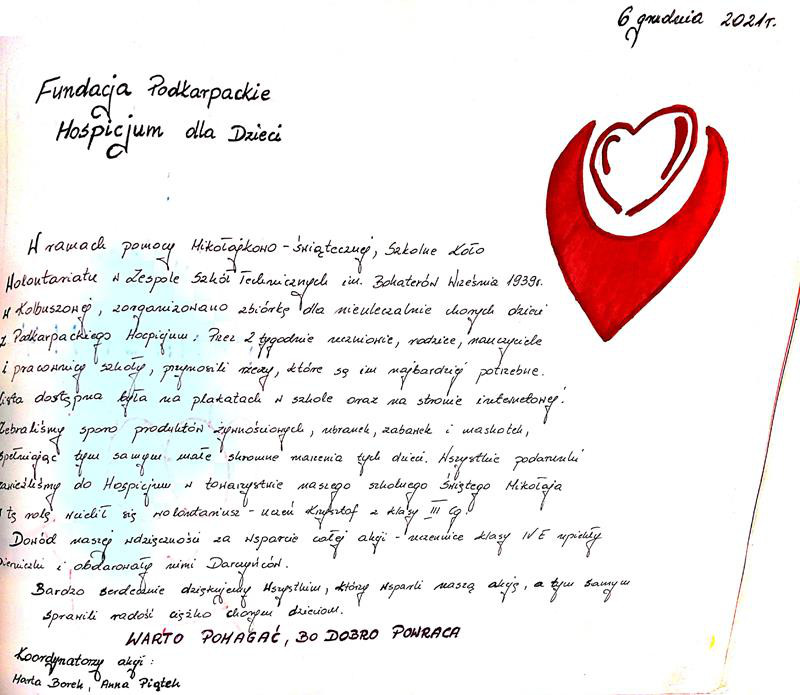 6 grudnia 2021r.
Fundacja Podkarpackie
Hospicjum dla Dzieci
W ramach pomocy Mikołajkowo - świątecznej, Szkolne Koło
Wolontariatu w Zespole Szkół Technicznych im. Bohaterów Września 1939r.
w Kolbuszowej, zorganizowano zbiórkę dla nieuleczalnie chorych dzieci
z Podkarpackiego Hospicjum. Przez 2 tygodnie uczniowie, rodzice, nauczyciele
i pracownicy szkoły, przynosili rzeczy, które są im najbardziej potrzebne.
Lista dostępna była na plakatach w szkole oraz na stronie internetowej.
Zebraliśmy sporo produktów żywnościowych, ubranek, zabawek i maskotek,
spełniając tym samym małe skromne marzenia tych dzieci. Wszystkie podarunki
zawieźliśmy do Hospicjum w towarzystwie naszego szkolnego Świętego Mikołaja
w tę rolę wcielił się wolontariusz - uczeń Krzysztof z klasy III Cg.
Dowód naszej wdzięczności za wsparcie całej akcji - uczennice klasy IV E upiekły
pierniczki i obdarowały nimi Darczyńców.
Bardzo serdecznie dziękujemy Wszystkim, którzy wsparli naszą akcję, a tym samym
sprawili radość ciężko chorym dzieciom.
WARTO POMAGAĆ, BO DOBRO POWRACA
Koordynatorzy akcji:
Marta Borek, Anna Piątek